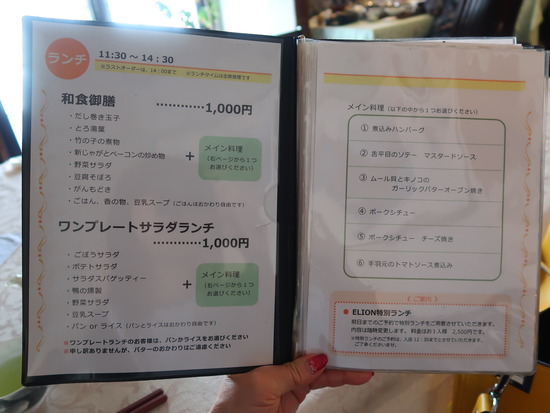 ランチ
11:30 〜 14:30
※ラストオーダーは、14:00まで ※ランチタイムは全席禁煙です
和食御膳 …………1,000円
・だし巻き玉子
・とろ湯葉
・竹の子の煮物
・新じゃがとベーコンの炒め物
・野菜サラダ
・豆腐そぼろ
・がんもどき
・ごはん、香の物、豆乳スープ（ごはんはおかわり自由です）
+
メイン料理
（右ページから１つ
お選びください）
ワンプレートサラダランチ
…………1,000円
・ごぼうサラダ
・ポテトサラダ
・サラダスパゲッティー
・鴨の燻製
・野菜サラダ
・豆乳スープ
・パン or ライス（パンとライスはおかわり自由です）
+
メイン料理
（右ページから１つ
お選びください）
※ワンプレートランチのお客様は、パンかライスをお選びください
※申し訳ありませんが、バターのおかわりはご遠慮ください
メイン料理（以下の中から１つお選びください）
① 煮込みハンバーグ
② 舌平目のソテー マスタードソース
③ ムール貝とキノコの
ガーリックバターオーブン焼き
④ ポークシチュー
⑤ ポークシチュー チーズ焼き
⑥ 手羽元のトマトソース煮込み
《 ご案内 》
● ELION特別ランチ
前日までのご予約で特別ランチをご用意させていただきます。
内容は随時変更します。料金はお１人様 2,500円です。
※特別ランチのご予約は、入店 12:30までとさせていただきます。
ご了承くださいませ。